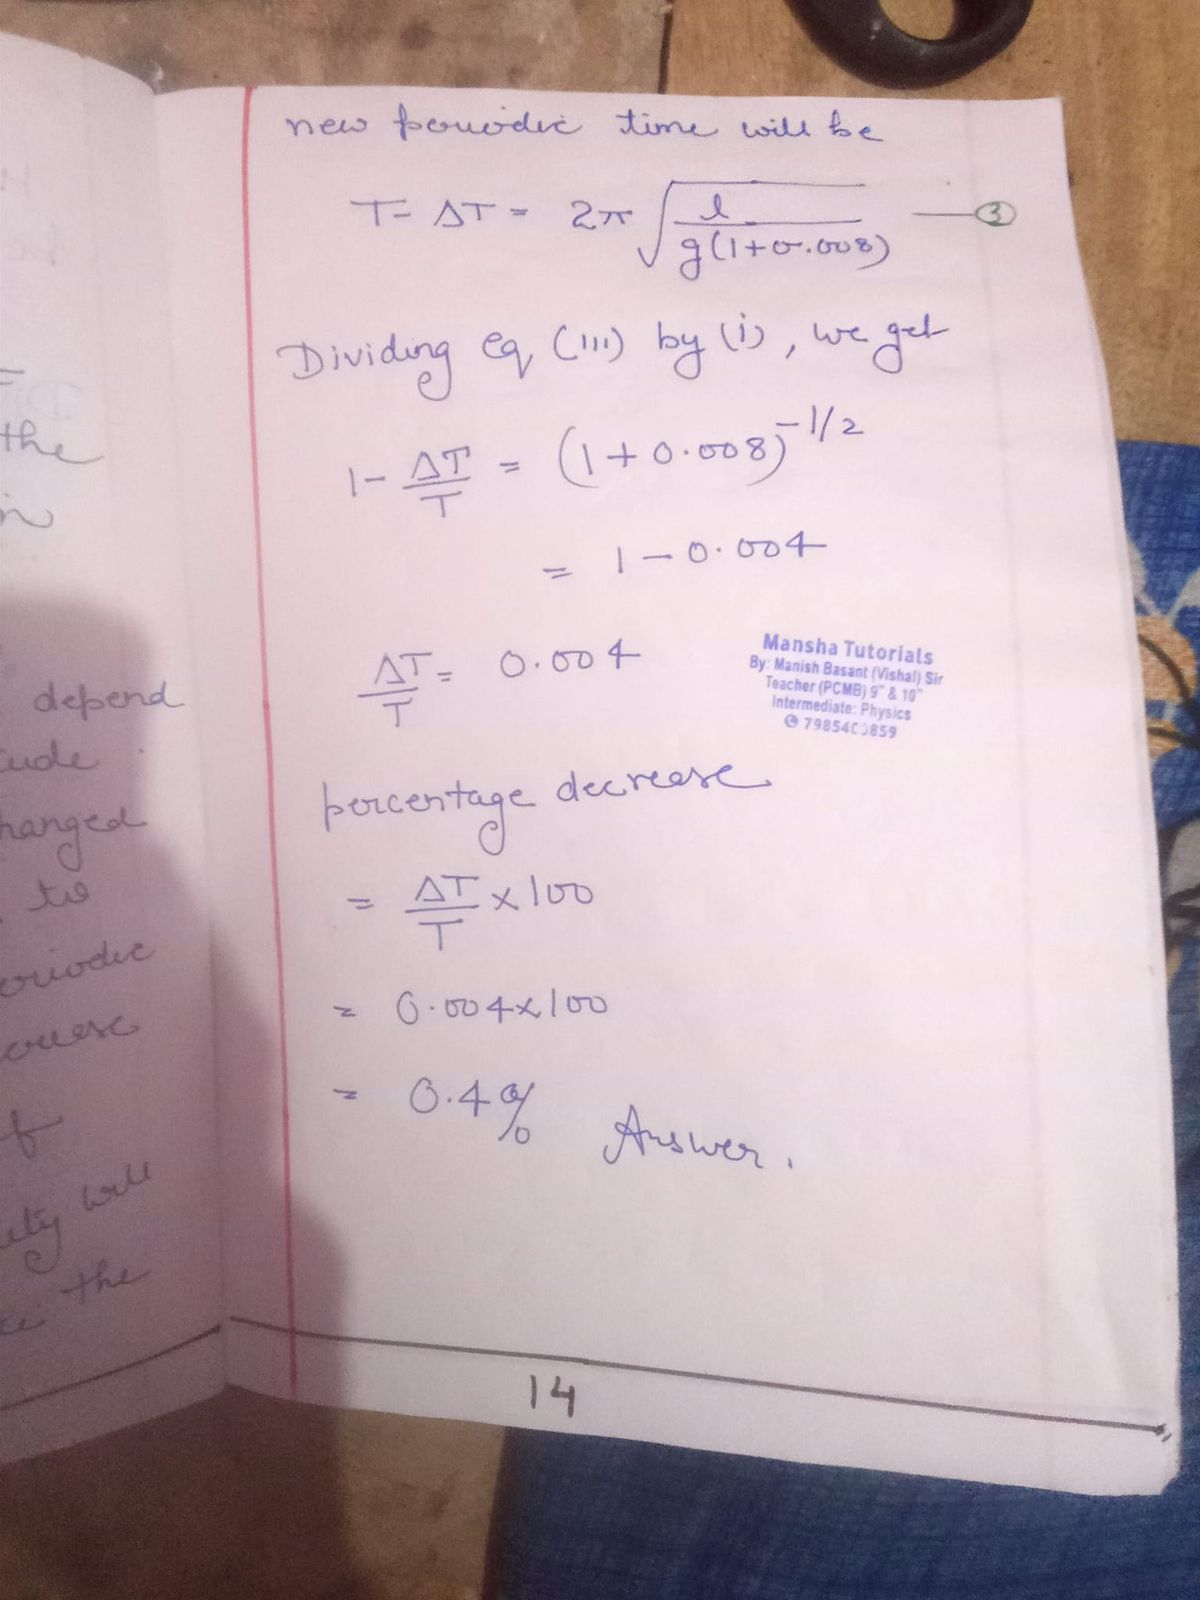 the
depend
hanged
to
the
new periodic time will be
T - ΔT = 2π √(l / g(1+0.008)) — ③
Dividing eq (iii) by (i), we get
1 - ΔT/T = (1+0.008)^-1/2
= 1 - 0.004
ΔT/T = 0.004
Mansha Tutorials
By: Manish Basant (Vishal) Sir
Teacher (PCMB) 9" & 10"
Intermediate: Physics
percentage decrease
= ΔT/T × 100
= 0.004×100
= 0.4% Answer.
14